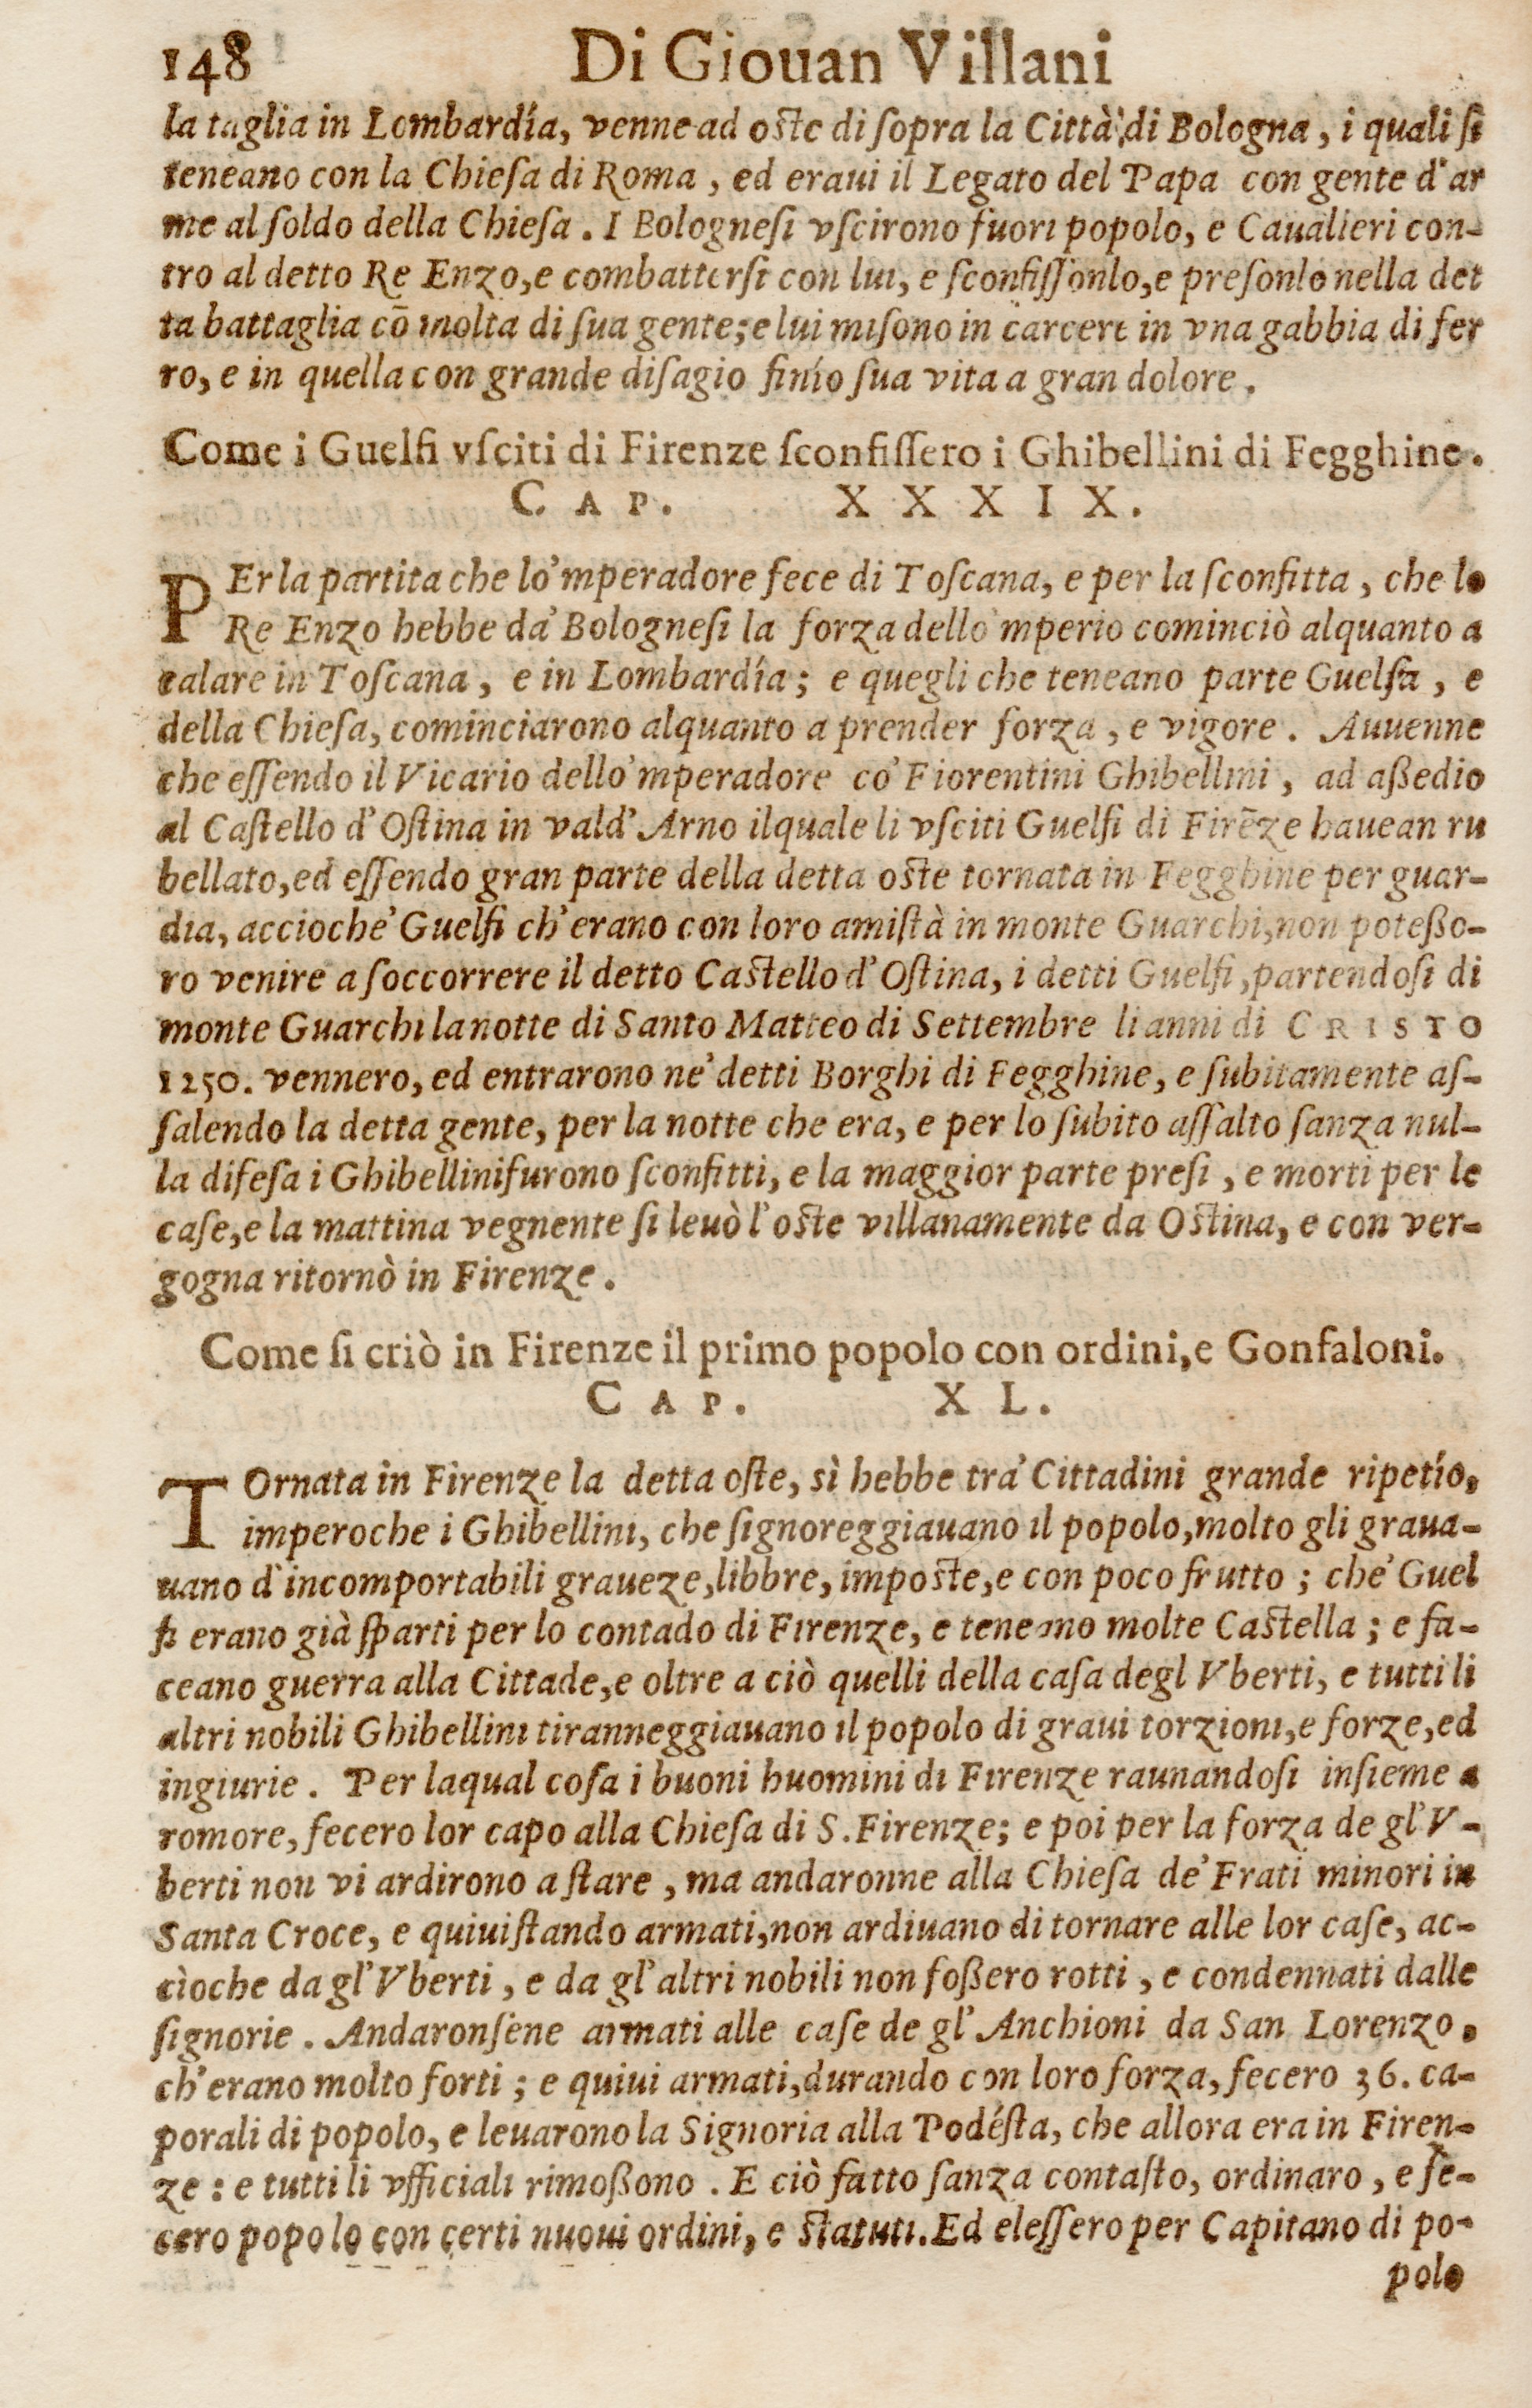 148 Di Giouan Villani
la taglia in Lombardía, venne ad oste di ſopra la Città di Bologna, i quali ſi
teneano con la Chieſa di Roma, ed eraui il Legato del Papa con gente d'ar
me al ſoldo della Chieſa. I Bologneſi vſcirono fuori popolo, e Caualieri con-
tro al detto Re Enzo, e combatterſi con lui, e ſconfiſſonlo, e preſonlo nella det
ta battaglia cō molta di ſua gente; e lui miſono in carcere in vna gabbia di fer
ro, e in quella con grande diſagio finío ſua vita a gran dolore.
Come i Guelfi vſciti di Firenze ſconfiſſero i Ghibellini di Fegghine.
CAP. XXXIX.
PEr la partita che lo'mperadore fece di Toſcana, e per la ſconfitta, che lo
Re Enzo hebbe da' Bologneſi la forza dello'mperio cominciò alquanto a
calare in Toſcana, e in Lombardía; e quegli che teneano parte Guelfa, e
della Chieſa, cominciarono alquanto a prender forza, e vigore. Auuenne
che eſſendo il Vicario dello'mperadore co' Fiorentini Ghibellini, ad aßedio
al Caſtello d'Oſtina in vald'Arno ilquale li vſciti Guelfi di Firēze hauean ru
bellato, ed eſſendo gran parte della detta oste tornata in Fegghine per guar-
dia, accioche' Guelfi ch'erano con loro amiſtà in monte Guarchi, non poteßo-
ro venire a ſoccorrere il detto Castello d'Oſtina, i detti Guelfi, partendoſi di
monte Guarchi la notte di Santo Matteo di Settembre li anni di CRISTO
1250. vennero, ed entrarono ne' detti Borghi di Fegghine, e ſubitamente aſ-
ſalendo la detta gente, per la notte che era, e per lo ſubito aſſalto ſanza nul-
la difeſa i Ghibellini furono ſconfitti, e la maggior parte preſi, e morti per le
caſe, e la mattina vegnente ſi leuò l'oste villanamente da Ostina, e con ver-
gogna ritornò in Firenze.
Come ſi criò in Firenze il primo popolo con ordini, e Gonfaloni.
CAP. XL.
TOrnata in Firenze la detta oſte, sì hebbe tra' Cittadini grande ripetío,
imperoche i Ghibellini, che ſignoreggiauano il popolo, molto gli graua-
uano d'incomportabili graueze, libbre, imposte, e con poco frutto; che' Guel
fi erano già ſparti per lo contado di Firenze, e teneano molte Castella; e fa-
ceano guerra alla Cittade, e oltre a ciò quelli della caſa degl Vberti, e tutti li
altri nobili Ghibellini tiranneggiauano il popolo di graui torzioni, e forze, ed
ingiurie. Per laqual coſa i buoni huomini di Firenze raunandoſi inſieme a
romore, fecero lor capo alla Chieſa di S. Firenze; e poi per la forza de gl'V-
berti non vi ardirono a ſtare, ma andaronne alla Chieſa de' Frati minori in
Santa Croce, e quiui ſtando armati, non ardiuano di tornare alle lor caſe, ac-
cioche da gl'Vberti, e da gl'altri nobili non foßero rotti, e condennati dalle
ſignorie. Andaronſene armati alle caſe de gl'Anchioni da San Lorenzo,
ch'erano molto forti; e quiui armati, durando con loro forza, fecero 36. ca-
porali di popolo, e leuarono la Signoria alla Podéſta, che allora era in Firen-
ze: e tutti li vfficiali rimoßono. E ciò fatto ſanza contaſto, ordinaro, e fe-
cero popolo con certi nuoui ordini, e statuti. Ed eleſſero per Capitano di po-
polo